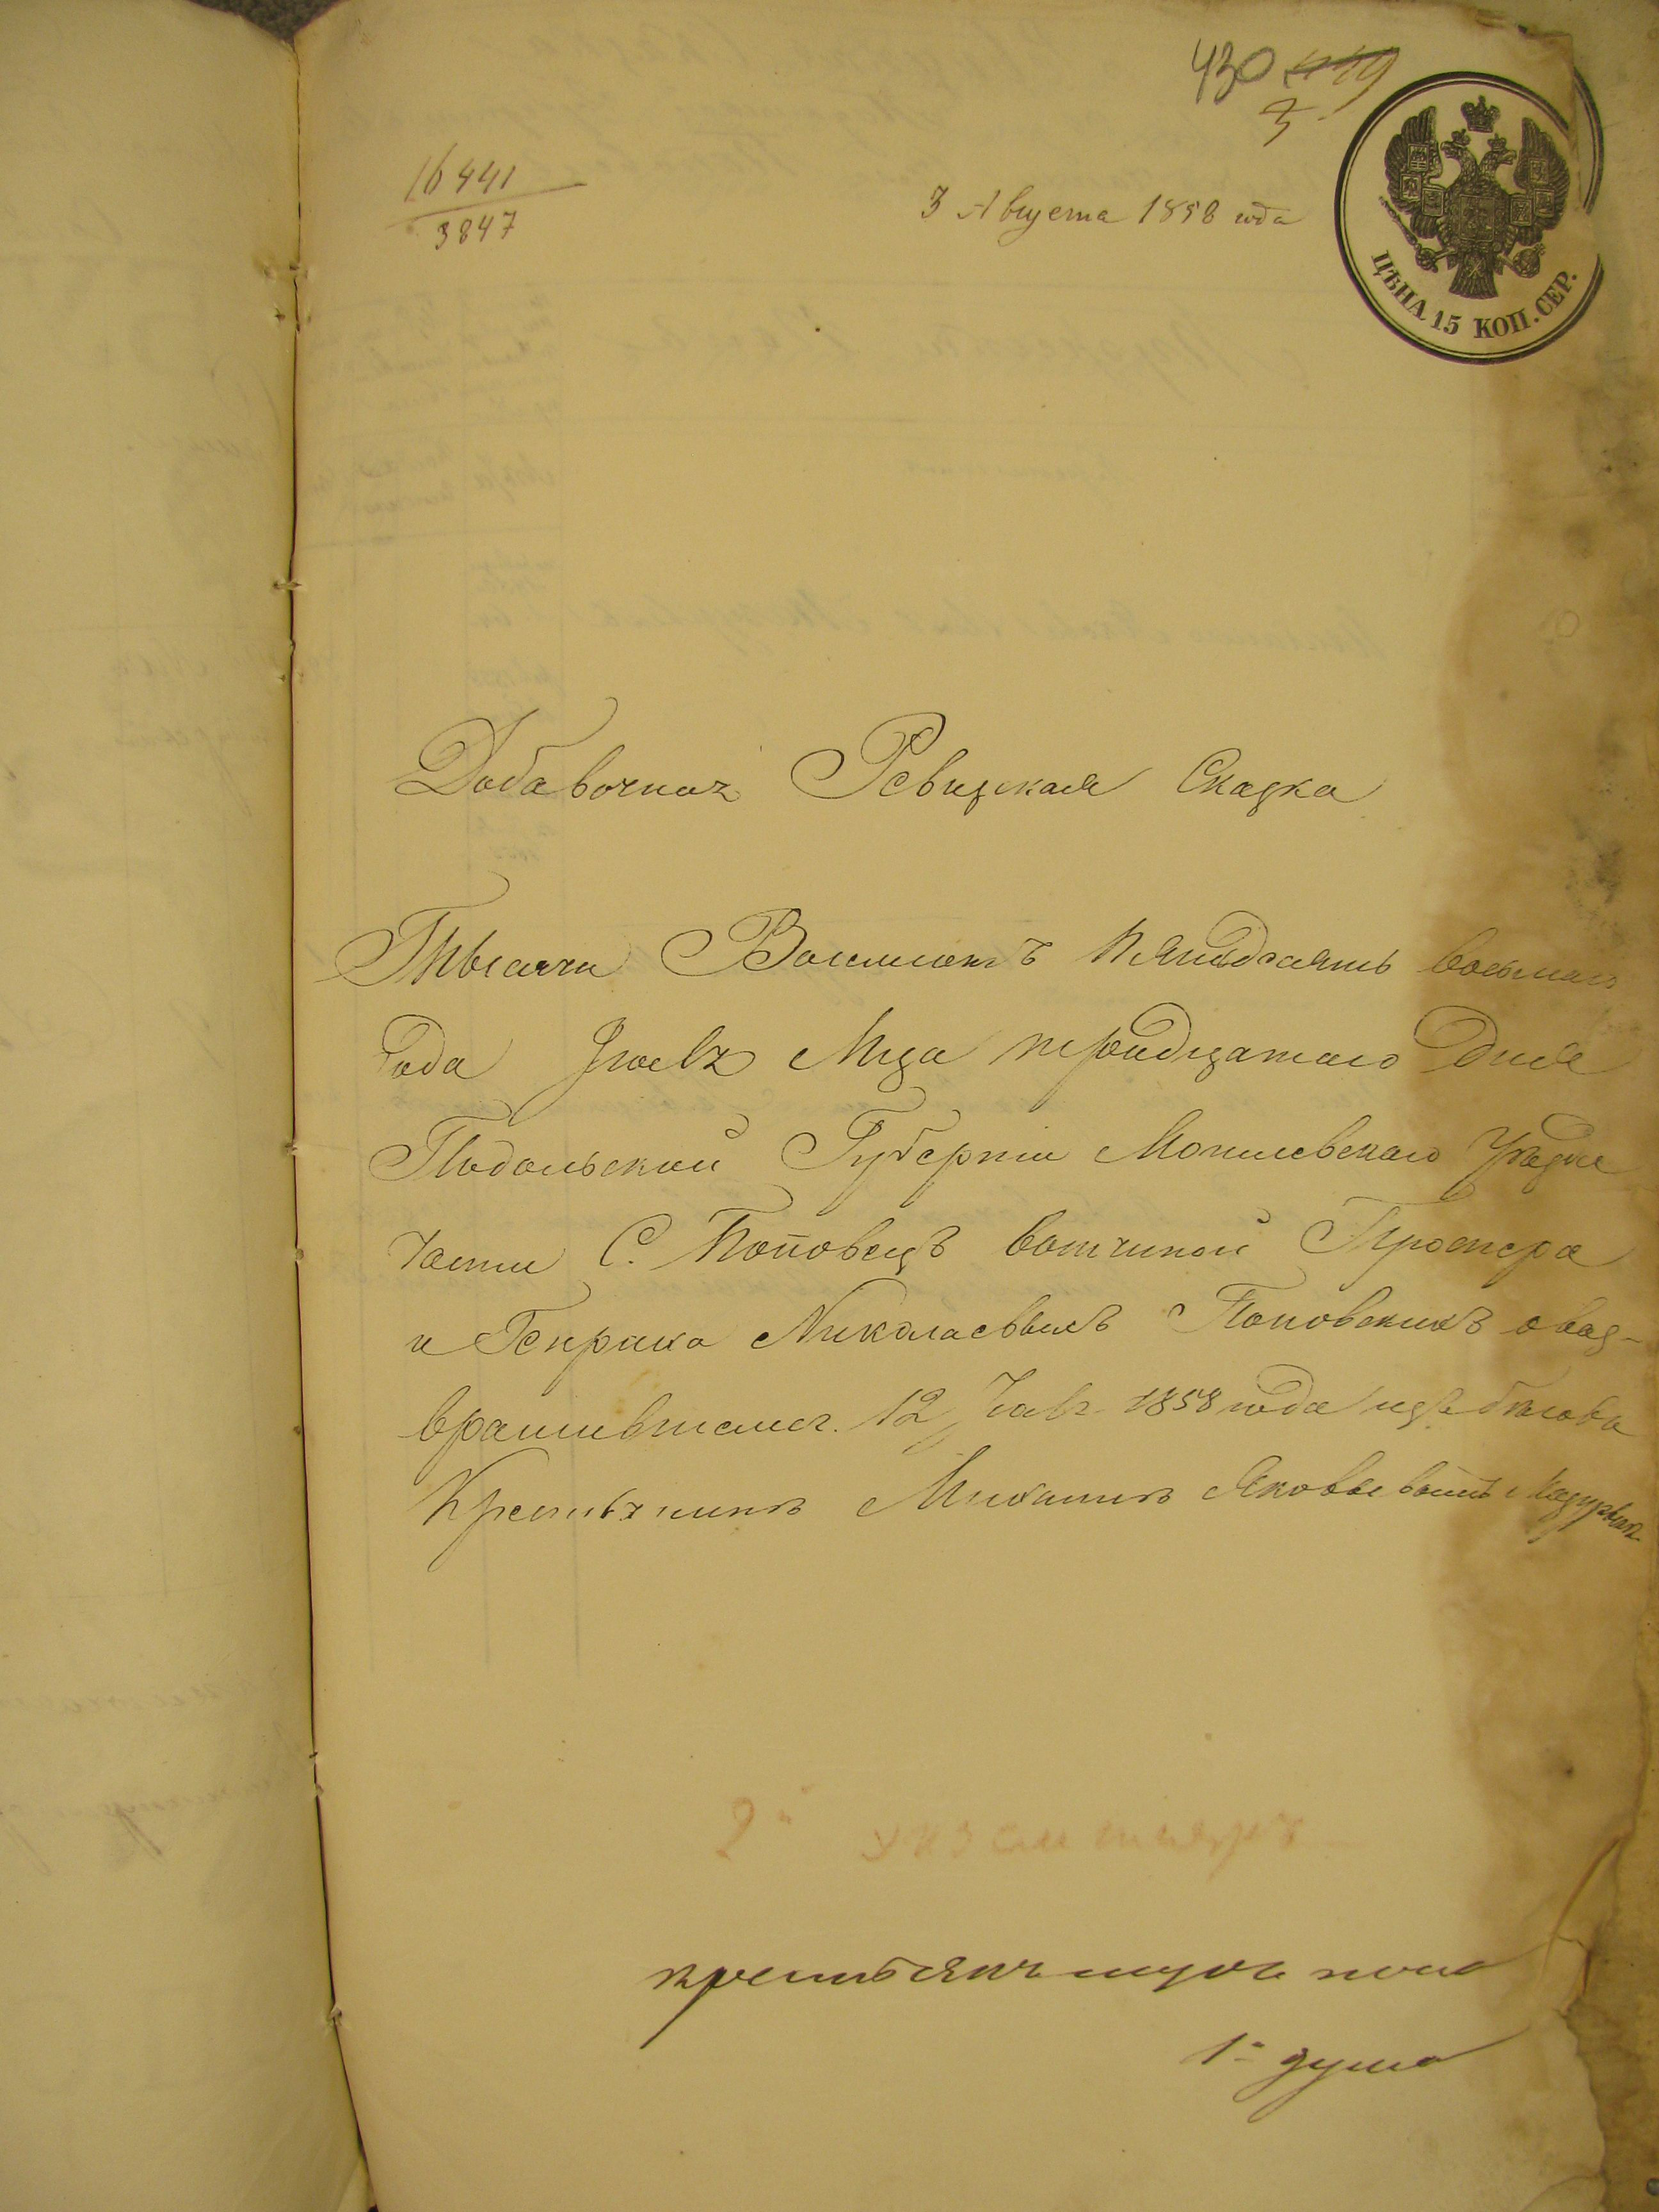 430 419
3
16441
3847
3 Августа 1858 года
ЦѢНА 15 КОП. СЕР.
Добавочная Ревизская Сказка
Тысяча Восемьсотъ Пятьдесятъ восьмаго
Года Июля Мца тридцатаго Дня
Подольской Губерніи Могилевскаго Уѣзда
части С. Поповецъ вотчиной Проспера
и Генриха Николаевыхъ Поповскихъ о воз-
вратившемся 12 1858 года изъ бѣговъ
Крестьянинѣ Михаилѣ Яковлевомъ Мазуркѣ
2
крестьянъ муж. пола
1 душа